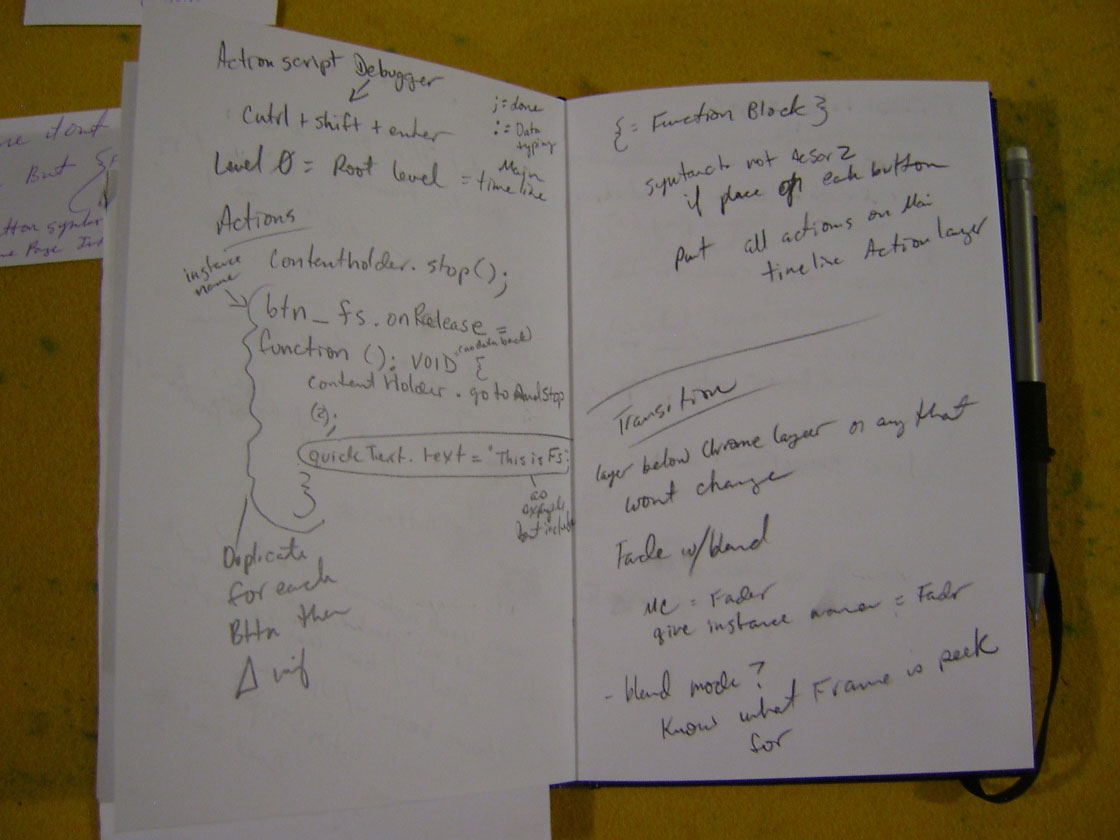 Actionscript Debugger
Cntrl + shift + enter
; = done
: = Data
typing
Level 0 = Root level = Main
timeline
Actions
instance
name
Contentholder.stop();
btn_fs.onRelease =
function (): VOID (no data back) {
contentHolder.gotoAndStop
(2);
quickText.text = "This is Fs"
as
example
Dont include
}
Duplicate
for each
Bttn then
Δ inf
{ = Function Block }
if place on each button
Put all actions on Main
timeline Action layer
Transition
layer below Chrome layer or any that
wont change
Fade w/blend
MC = Fader
give instance name = Fadr
- blend mode?
Know what Frame is peek
for
ure it out
But
button symbol